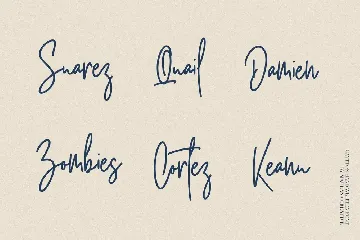 Suarez Quail Damien
Zombies Cortez Keanu